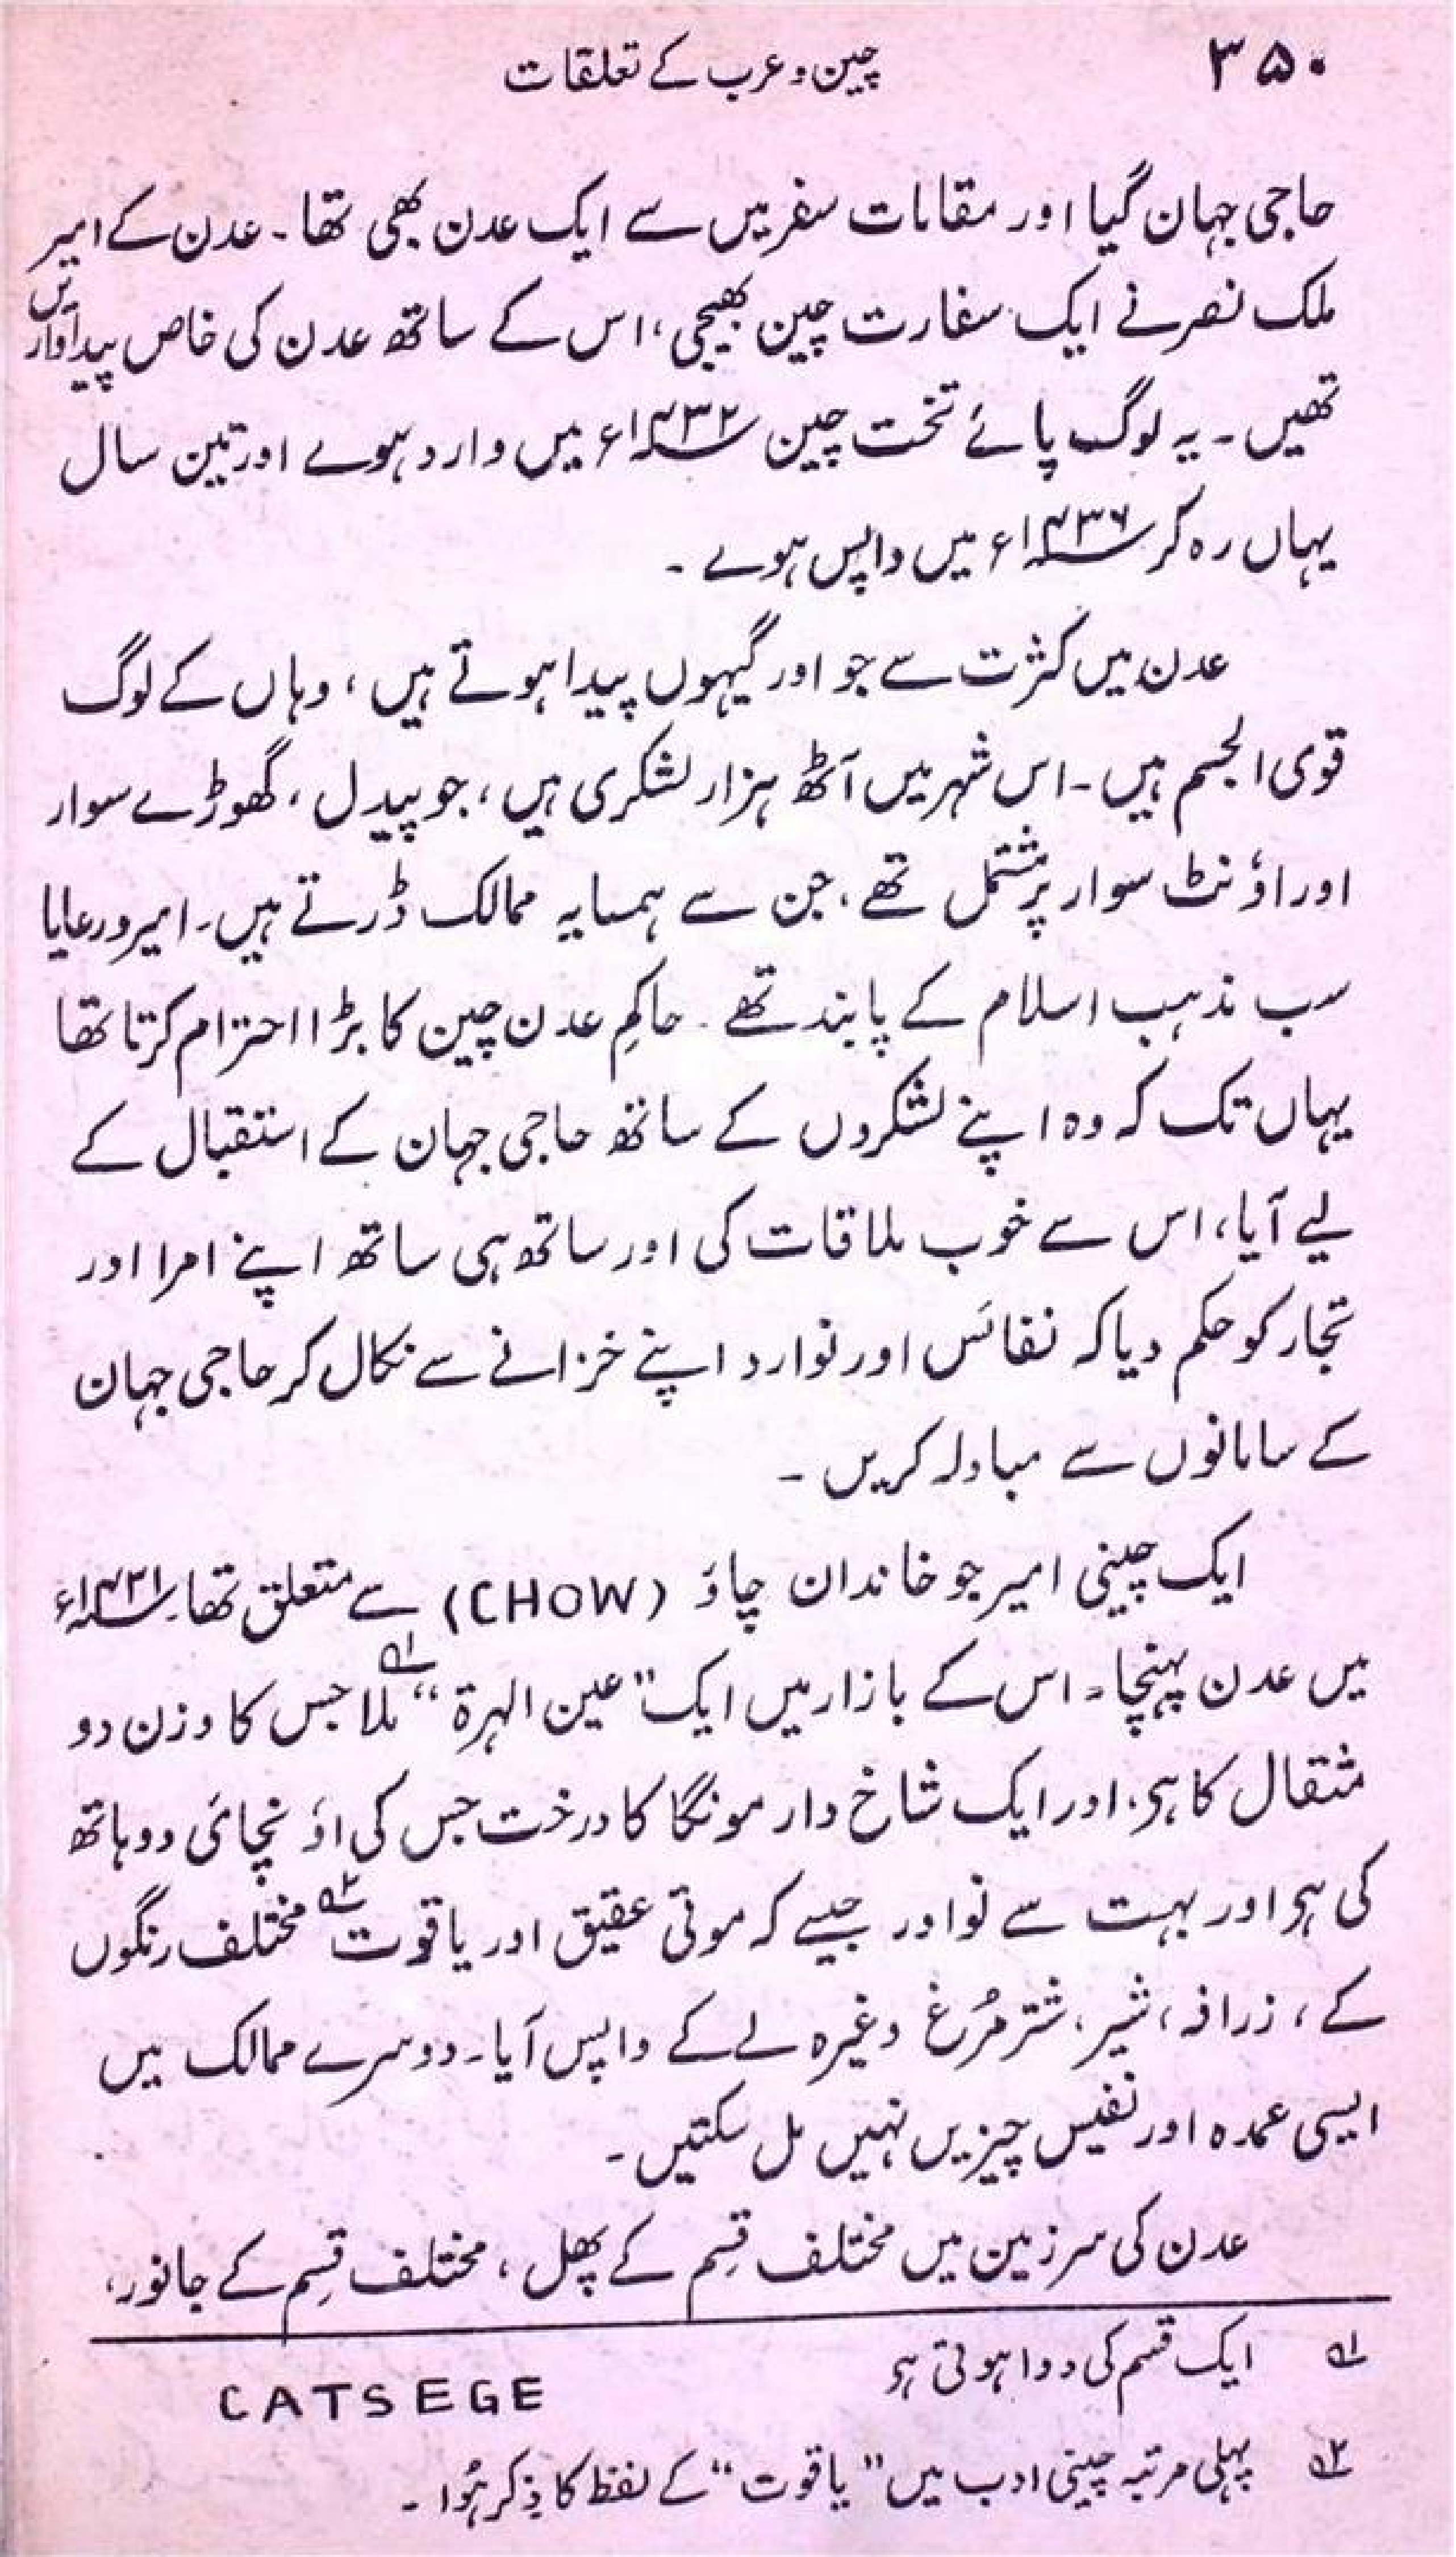 ۳۵۰
چین و عرب کے تعلقات
حاجی جہان گیا اور مقامات سفر میں سے ایک عدن بھی تھا۔ عدن کے امیر
ملک نصر نے ایک سفارت چین بھیجی، اس کے ساتھ عدن کی خاص پیداواریں
تھیں۔ یہ لوگ پائے تخت چین ۱۴۳۲ء میں وارد ہوے اور تین سال
یہاں رہ کر ۱۴۳۶ء میں واپس ہوے۔
عدن میں کثرت سے جو اور گیہوں پیدا ہوتے ہیں، وہاں کے لوگ
قوی الجسم ہیں۔ اس شہر میں آٹھ ہزار لشکری ہیں، جو پیدل، گھوڑے سوار
اور اؤنٹ سوار پر مشتمل تھے، جن سے ہمسایہ ممالک ڈرتے ہیں۔ امیر و رعایا
سب مذہب اسلام کے پابند تھے۔ حاکمِ عدن چین کا بڑا احترام کرتا تھا
یہاں تک کہ وہ اپنے لشکروں کے ساتھ حاجی جہان کے استقبال کے
لیے آیا، اس سے خوب ملاقات کی اور ساتھ ہی ساتھ اپنے امرا اور
تجار کو حکم دیا کہ نفائس اور نوارد اپنے خزانے سے نکال کر حاجی جہان
کے سامانوں سے مبادلہ کریں۔
ایک چینی امیر جو خاندان چاؤ (CHOW) سے متعلق تھا۔ ۱۴۳۱ء
میں عدن پہنچا۔ اس کے بازار میں ایک "عین الہرۃ" ۱ ملا جس کا وزن دو
مثقال کا ہی، اور ایک شاخ دار مونگا کا درخت جس کی اؤنچائی دو ہاتھ
کی ہی اور بہت سے نوادر جیسے کہ موتی عقیق اور یاقوت ۲ مختلف رنگوں
کے، زرافہ، شیر، شتر مُرغ وغیرہ لے کے واپس آیا۔ دوسرے ممالک میں
ایسی عمدہ اور نفیس چیزیں نہیں مل سکتیں۔
عدن کی سرزمین میں مختلف قسم کے پھل، مختلف قسم کے جانور،
۱ ایک قسم کی دوا ہوتی ہی
CATSEGE
۲ پہلی مرتبہ چینی ادب میں "یاقوت" کے لفظ کا ذکر ہُوا۔